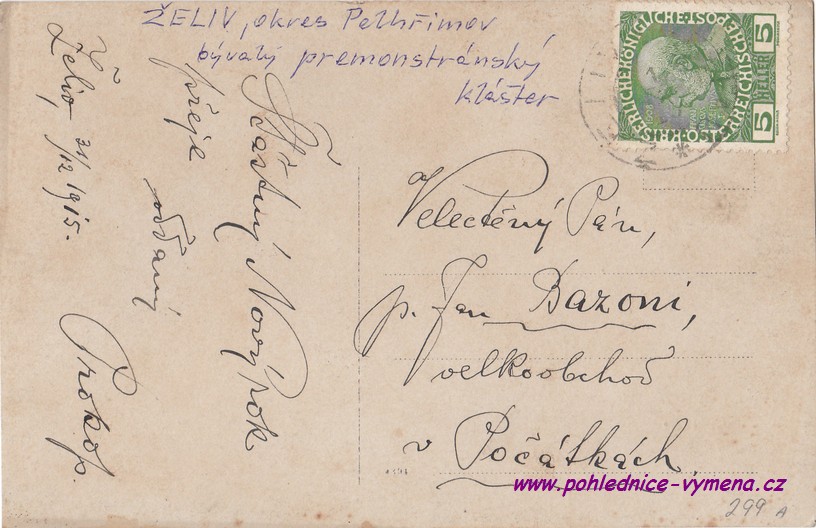 ŽELIV, okres Pelhřimov
bývalý premonstránský
klášter
Želiv 31/12 1915.
Šťastný Nový rok
přeje
oddaný
Prokop.
KAISERLICHE KÖNIGLICHE ÖSTERREICHISCHE POST
5 HELLER 5
Velectěný Pán,
p. Jan Bazoni,
velkoobchod
v Počátkách
www.pohlednice-vymena.cz
299 A